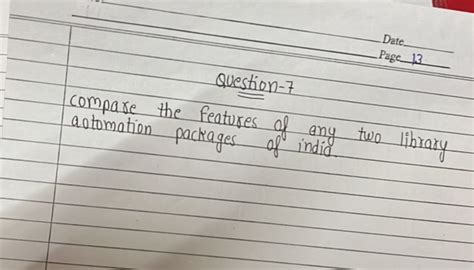 Date
Page 13
Question-7
compare the features of any two library
aotomation packages of india.